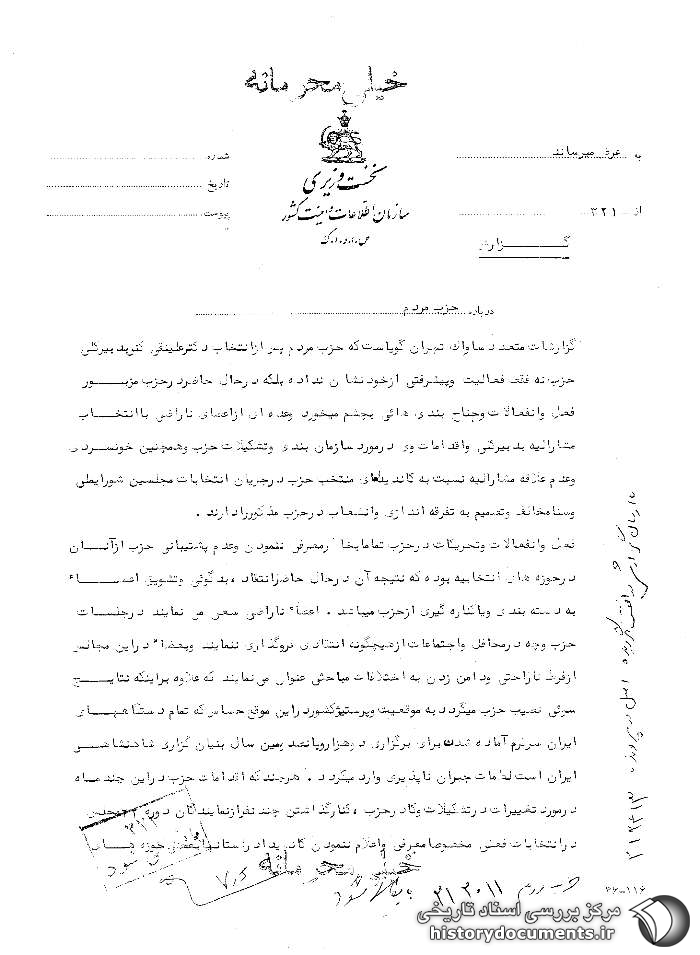 خیلی محرمانه
نخست وزیری
سازمان اطلاعات و امنیت کشور
به عرض میرساند
از ۳۲۱
شماره
تاریخ
پیوست
گزارش
درباره حزب مردم
گزارشات متعدد ساواک تهران گویاست که حزب مردم پس از انتخاب دکتر علینقی کنی بدبیرکلی
حزب نه فقط فعالیت و پیشرفتی از خود نشان نداده بلکه در حال حاضر در حزب مزبور
فعل و انفعالات و جناح بندی هائی بچشم میخورد و عده ای از اعضای ناراضی با انتخاب
مشارالیه بدبیرکلی و اقدامات وی در مورد سازمان بندی و تشکیلات حزب و همچنین خونسردی
و عدم علاقه مشارالیه نسبت به کاندیدهای منتخب حزب در جریان انتخابات مجلسین شورایملی
و سنا مخالف و تصمیم به تفرقه اندازی و انشعاب در حزب مذکور را دارند .
فعل و انفعالات و تحریکات در حزب تماما بخاطر معرفی ننمودن و عدم پشتیبانی حزب از آنان
در حوزه های انتخابیه بوده که نتیجه آن در حال حاضر انتقاد ، بدگوئی و تشویق اعضاء
به دسته بندی و یا کناره گیری از حزب میباشد . اعضاء ناراضی سعی می نمایند در جلسات
حزب و چه در محافل و اجتماعات از هیچگونه انتقادی فروگذاری ننمایند و بعضاً در این مجالس
از فرط ناراحتی و دامن زدن به اختلافات مباحثی عنوان می نمایند که علاوه بر اینکه نتایج
سوئی نصیب حزب میگردد به موقعیت و پرستیژ کشور در این موقع حساس که تمام دستگاههای
ایران سرگرم آماده شدن برای برگزاری دو هزار و پانصدمین سال بنیان گزاری شاهنشاهی
ایران است لطمات جبران ناپذیری وارد میگردد . هر چند که اقدامات حزب در این چند ماه
در مورد تغییرات در تشکیلات و کادر حزب ، کنار گذاشتن چند نفر از نمایندگان دوره
در انتخابات فعلی مخصوصا معرفی و اعلام ننمودن کاندیدا در استانها حوزه
خیلی محرمانه
حزب مردم
۳۱۲۰۱۱
۳۱۲۳۱۳
۲۶-۱۱۶
مرکز بررسی اسناد تاریخی
historydocuments.ir